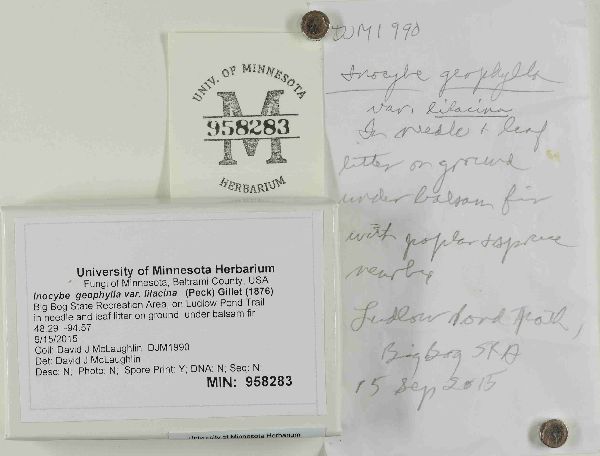 DJM1990
Inocybe geophylla
var. lilacina
In needle + leaf
litter on ground
under balsam fir
with poplar + spruce
nearby
Ludlow Pond Path,
Big Bog SRA
15 Sep 2015
UNIV. OF MINNESOTA
M
958283
HERBARIUM
University of Minnesota Herbarium
Fungi of Minnesota, Beltrami County, USA
Inocybe geophylla var. lilacina (Peck) Gillet (1876)
Big Bog State Recreation Area on Ludlow Pond Trail
in needle and leaf litter on ground under balsam fir
48.29 -94.57
9/15/2015
Coll: David J McLaughlin, DJM1990
Det: David J McLaughlin
Desc: N, Photo: N, Spore Print: Y; DNA: N; Seq: N
MIN: 958283
University of Minnesota Herbarium